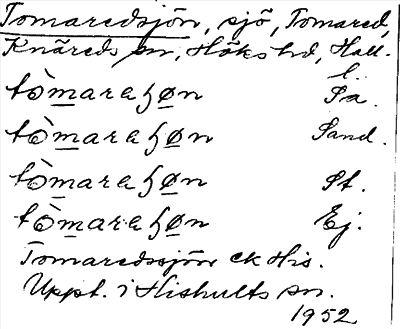 Tomaredsjön, sjö, Tomared,
Knäreds sn, Höks hd, Hall.
l.
tòmaraɧøn Pa.
tòmaraɧøn Sand.
tòmaraɧøn St.
tòmaraɧøn Ej.
Tomaredssjön ck His.
Uppt. i Hishults sn.
1952